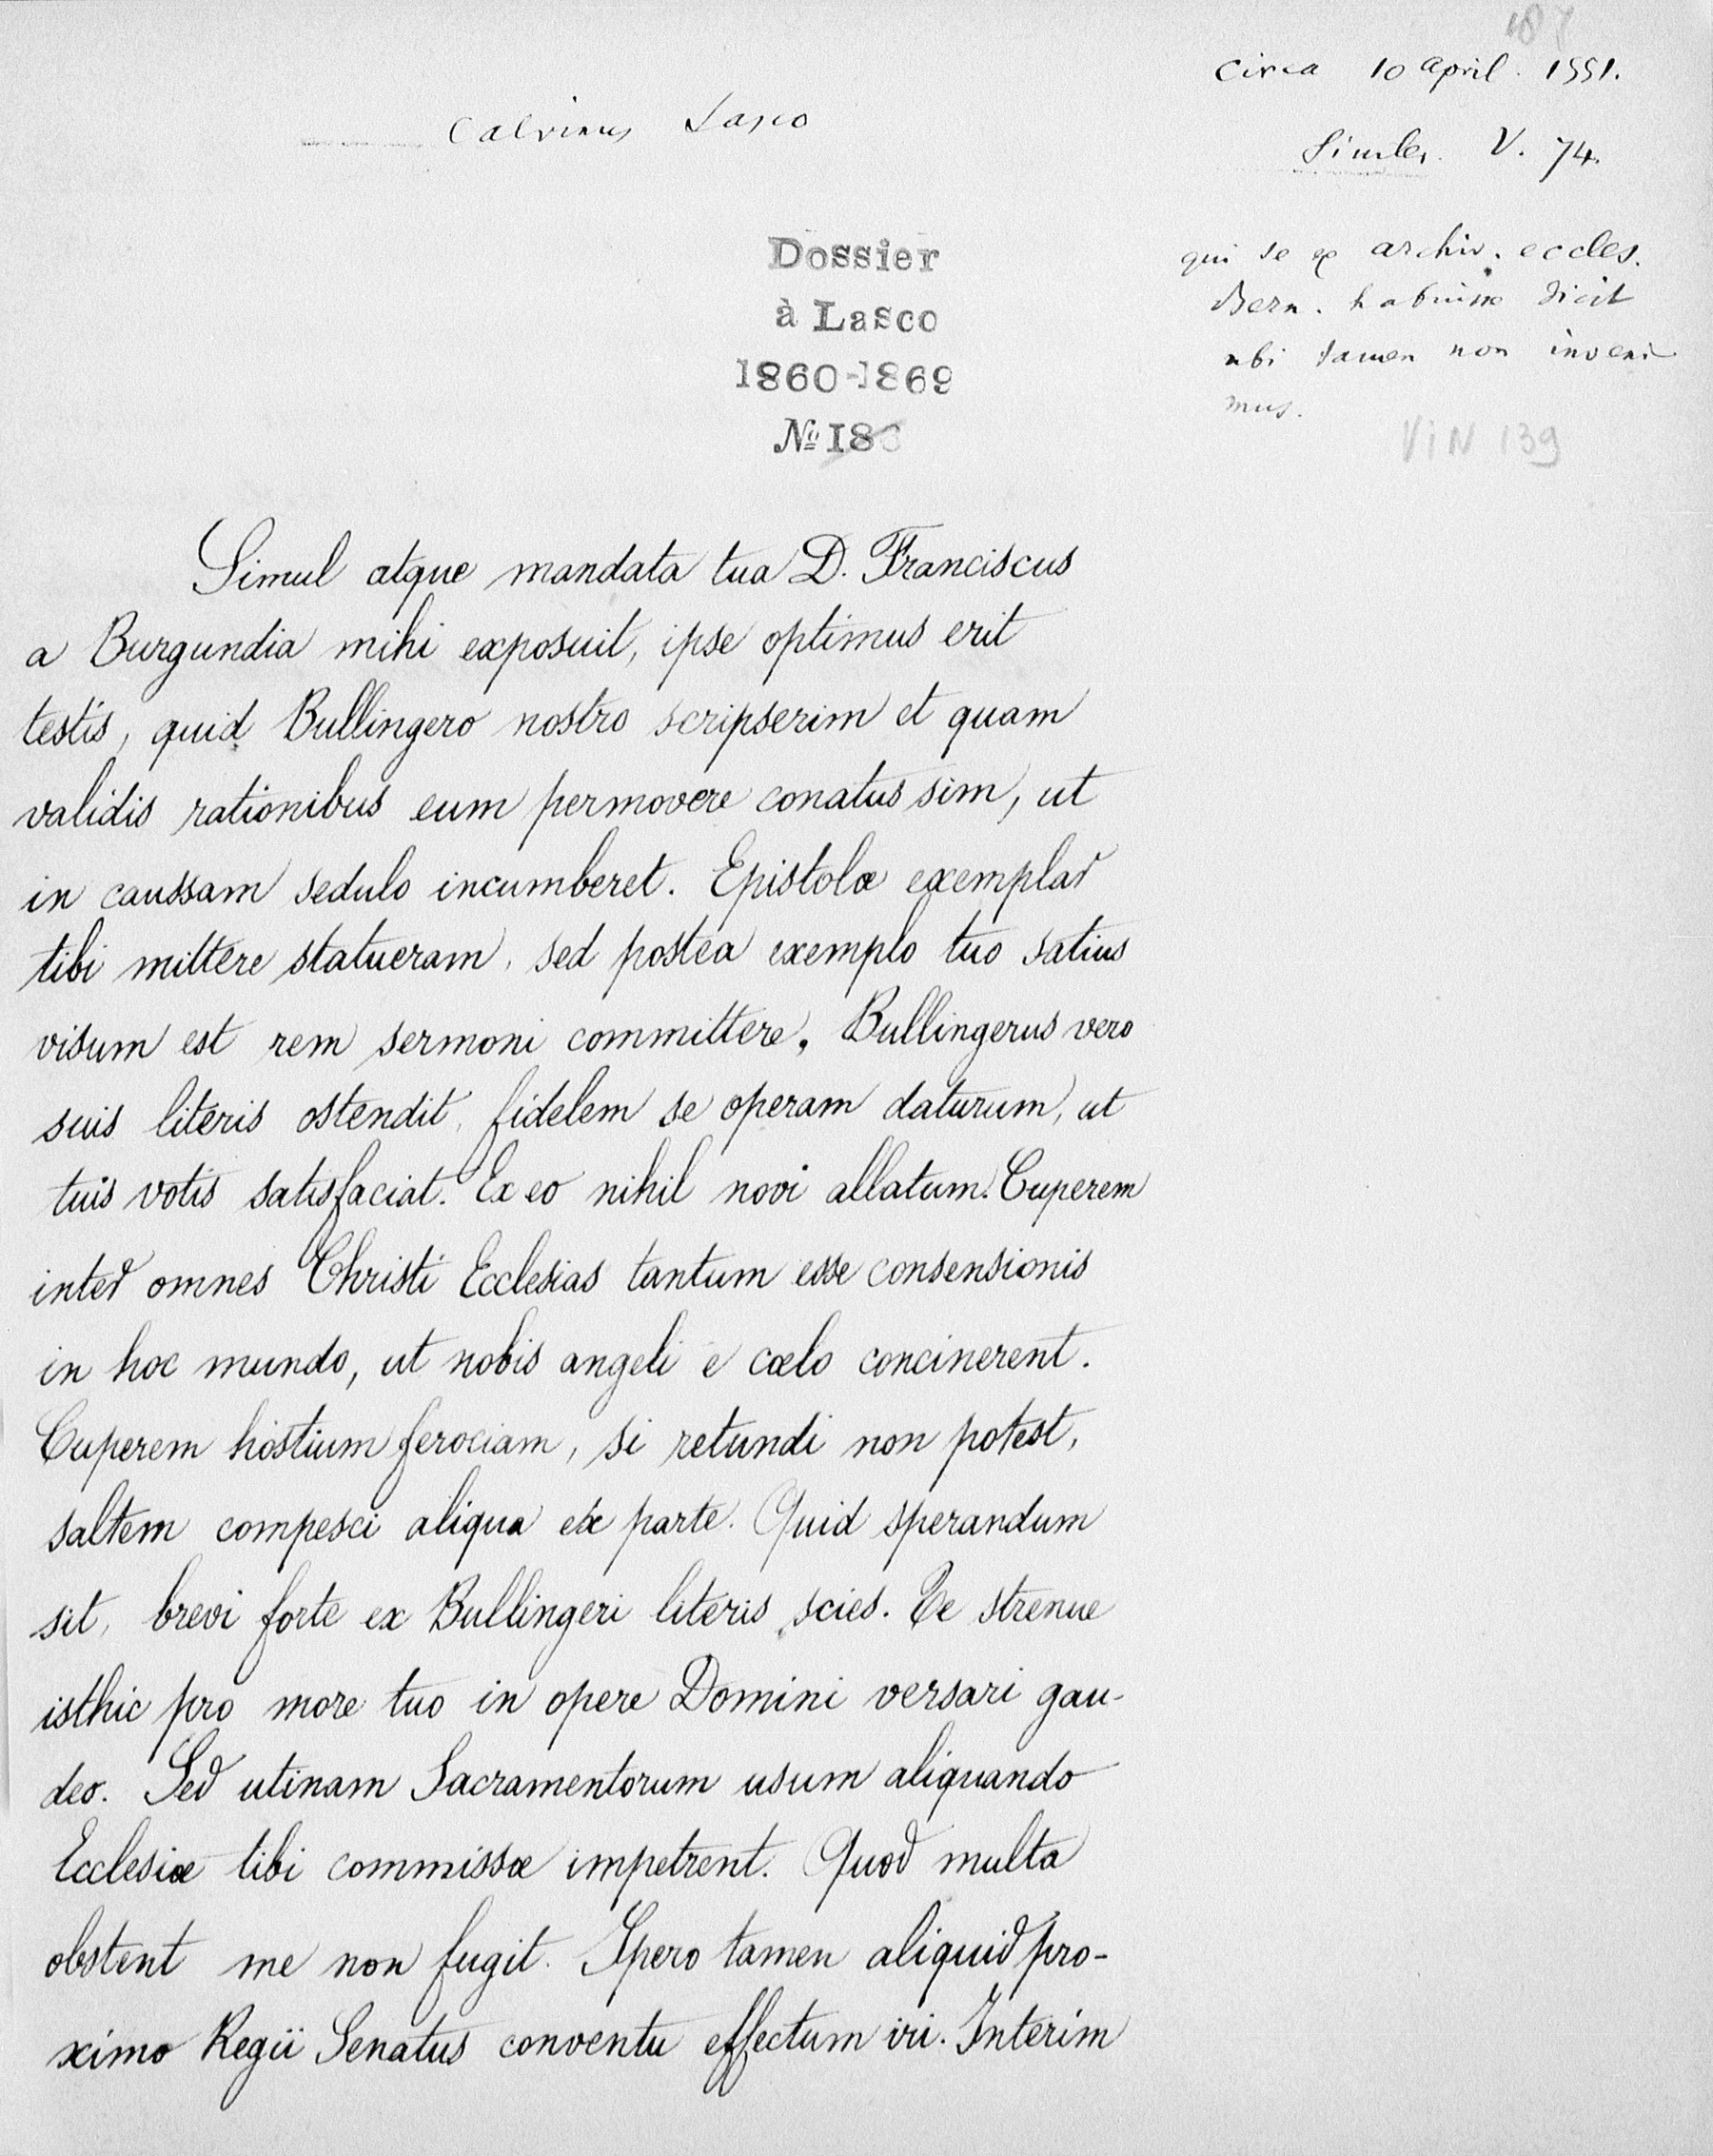 187
Circa 10 April. 1551.
Calvinus Lasco
Simler. V. 74.
qui se ex archiv. eccles.
Bern. habuisse dicit
ubi tamen non inveni
mus.
Dossier
à Lasco
1860-1869
No 18
VIN 139
Simul atque mandata tua D. Franciscus
a Burgundia mihi exposuit, ipse optimus erit
testis, quid Bullingero nostro scripserim et quam
validis rationibus eum permovere conatus sim, ut
in caussam sedulo incumberet. Epistolæ exemplar
tibi mittere statueram, sed postea exemplo tuo satius
visum est rem sermoni committere. Bullingerus vero
suis literis ostendit, fidelem se operam daturum, ut
tuis votis satisfaciat. Ex eo nihil novi allatum. Cuperem
inter omnes Christi Ecclesias tantum esse consensionis
in hoc mundo, ut nobis angeli e cœlo concinerent.
Cuperem hostium ferociam, si retundi non potest,
saltem compesci aliqua ex parte. Quid sperandum
sit, brevi forte ex Bullingeri literis scies. Te strenue
isthic pro more tuo in opere Domini versari gau-
deo. Sed utinam Sacramentorum usum aliquando
Ecclesiæ tibi commissæ impetrent. Quod multa
obstent me non fugit. Spero tamen aliquid pro-
ximo Regii Senatus conventu effectum iri. Interim